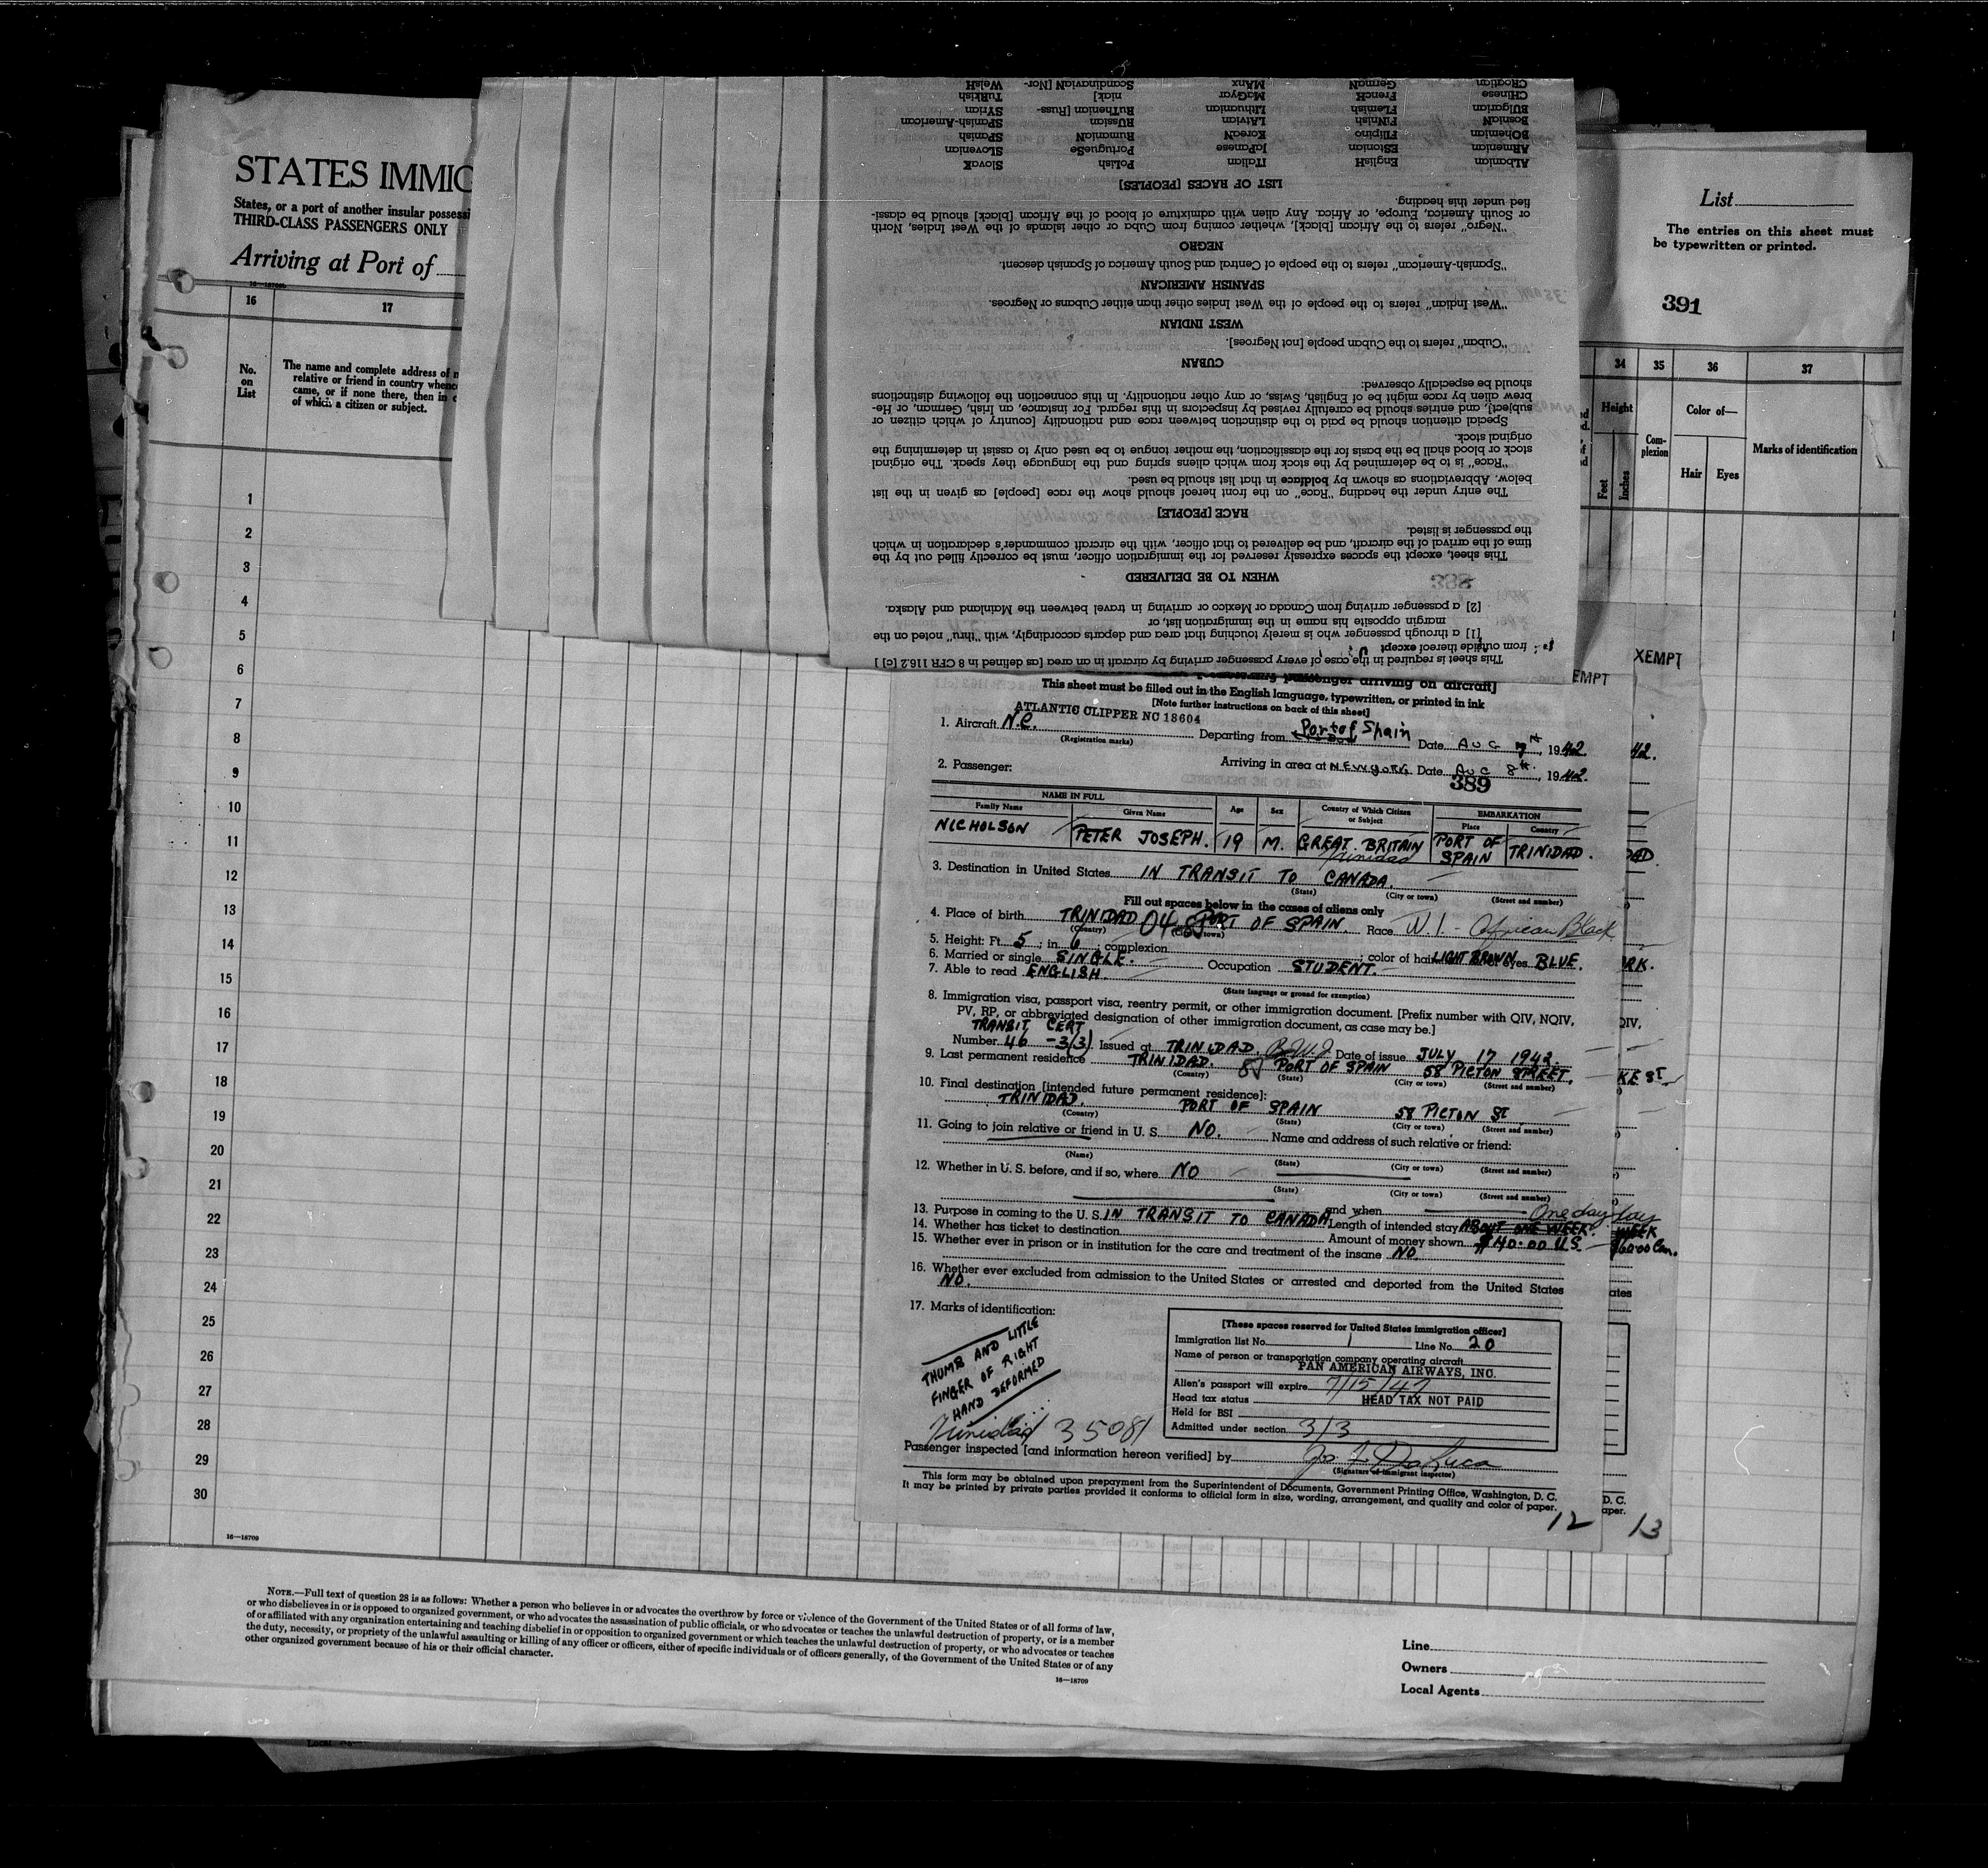 STATES IMMIG
States, or a port of another insular possessi
THIRD-CLASS PASSENGERS ONLY
Arriving at Port of
16 17
No. on List
The name and complete address of n
relative or friend in country whenc
came, or if none there, then in c
of which a citizen or subject.
1
2
3
4
5
6
7
8
9
10
11
12
13
14
15
16
17
18
19
20
21
22
23
24
25
26
27
28
29
30
16—18709
List
The entries on this sheet must
be typewritten or printed.
391
34 35 36 37
Height
Feet
Inches
Com-
plexion
Color of—
Hair Eyes
Marks of identification
This sheet is required in the case of every passenger arriving by aircraft in an area [as defined in 8 CFR 116.2 [c] ]
from outside thereof except
[1] a through passenger who is merely touching that area and departs accordingly, with "thru" noted on the
margin opposite his name in the immigration list, or
[2] a passenger arriving from Canada or Mexico or arriving in travel between the Mainland and Alaska.
WHEN TO BE DELIVERED
This sheet, except the spaces expressly reserved for the immigration officer, must be correctly filled out by the
time of the arrival of the aircraft, and be delivered to that officer, with the aircraft commander's declaration in which
the passenger is listed.
RACE [PEOPLE]
The entry under the heading "Race" on the front hereof should show the race [people] as given in the list
below. Abbreviations as shown by boldface in that list should be used.
"Race" is to be determined by the stock from which aliens spring and the language they speak. The original
stock or blood shall be the basis for the classification, the mother tongue to be used only to assist in determining the
original stock.
Special attention should be paid to the distinction between race and nationality [country of which citizen or
subject], and entries should be carefully revised by inspectors in this regard. For instance, an Irish, German, or He-
brew alien by race might be of English, Swiss, or any other nationality. In this connection the following distinctions
should be especially observed:
CUBAN
"Cuban" refers to the Cuban people [not Negroes].
WEST INDIAN
"West Indian" refers to the people of the West Indies other than either Cubans or Negroes.
SPANISH AMERICAN
"Spanish-American" refers to the people of Central and South America of Spanish descent.
NEGRO
"Negro" refers to the African [black], whether coming from Cuba or other islands of the West Indies, North
or South America, Europe, or Africa. Any alien with admixture of blood of the African [black] should be classi-
fied under this heading.
LIST OF RACES [PEOPLES]
ALbanian EnglisH ITalian PoLish SlovaK
ARmenian EStonian JaPanese PortugueSe SLovenian
BOhemian FIlipino KoreaN RumaniaN SPanish
BosniaN FINnish LAtvian RUssian SPanish-American
BUlgarian FLemish Lithuanian RuThenian [Russ- SYrian
CHinese FrencH MaGyar niak] TuRkish
CRoatian GermaN MAnx Scandinavian [Nor- WelsH
XEMPT
EMPT
passenger arriving on aircraft]
This sheet must be filled out in the English language, typewritten, or printed in ink
[Note further instructions on back of this sheet]
ATLANTIC CLIPPER NC 18604
1. Aircraft N.C. Departing from Port of Spain Date AUG 7th, 1942.
(Registration marks)
Arriving in area at NEW YORK Date AUG 8th, 1942.
2. Passenger:
389
NAME IN FULL Age Sex Country of Which Citizen or Subject EMBARKATION
Family Name Given Name Place Country
NICHOLSON PETER JOSEPH. 19 M. GREAT BRITAIN PORT OF SPAIN TRINIDAD.
Trinidad
3. Destination in United States IN TRANSIT TO CANADA.
(State) (City or town) (Street and number)
Fill out spaces below in the cases of aliens only
4. Place of birth TRINIDAD 04 85 PORT OF SPAIN Race W.I. - African Black
(Country) (City or town)
5. Height: Ft. 5; in. 6; complexion ; color of hair LIGHT BROWN eyes BLUE.
6. Married or single SINGLE. Occupation STUDENT.
7. Able to read ENGLISH.
(State language or ground for exemption)
8. Immigration visa, passport visa, reentry permit, or other immigration document. [Prefix number with QIV, NQIV,
PV, RP, or abbreviated designation of other immigration document, as case may be.]
TRANSIT CERT
Number 46 -3(3) Issued at TRINIDAD. B.W.I Date of issue JULY 17 1942.
9. Last permanent residence TRINIDAD. 85 PORT OF SPAIN 58 PICTON STREET.
(Country) (State) (City or town) (Street and number)
10. Final destination [intended future permanent residence]:
TRINIDAD. PORT OF SPAIN 58 PICTON ST.
(Country) (State) (City or town) (Street and number)
11. Going to join relative or friend in U. S. NO. Name and address of such relative or friend:
(Name) (State) (City or town) (Street and number)
12. Whether in U. S. before, and if so, where NO
(State) (City or town) (Street and number)
and when
13. Purpose in coming to the U. S. IN TRANSIT TO CANADA Length of intended stay ABOUT ONE WEEK. One day
14. Whether has ticket to destination Amount of money shown $40.00 U.S.
15. Whether ever in prison or in institution for the care and treatment of the insane NO
16. Whether ever excluded from admission to the United States or arrested and deported from the United States
NO.
17. Marks of identification:
THUMB AND LITTLE
FINGER OF RIGHT
HAND DEFORMED
Trinidad 35081
[These spaces reserved for United States immigration officer]
Immigration list No. 1 Line No. 20
Name of person or transportation company operating aircraft
PAN AMERICAN AIRWAYS, INC.
Alien's passport will expire 7/15/47
Head tax status HEAD TAX NOT PAID
Held for BSI
Admitted under section 3/3
Passenger inspected [and information hereon verified] by
(Signature of immigrant inspector)
This form may be obtained upon prepayment from the Superintendent of Documents, Government Printing Office, Washington, D. C.
It may be printed by private parties provided it conforms to official form in size, wording, arrangement, and quality and color of paper.
12
13
42.
RK.
QIV,
KE ST.
WEEK
ates
D. C.
aper.
NOTE.—Full text of question 28 is as follows: Whether a person who believes in or advocates the overthrow by force or violence of the Government of the United States or of all forms of law,
or who disbelieves in or is opposed to organized government, or who advocates the assassination of public officials, or who advocates or teaches the unlawful destruction of property, or is a member
of or affiliated with any organization entertaining and teaching disbelief in or opposition to organized government or which teaches the unlawful destruction of property, or who advocates or teaches
the duty, necessity, or propriety of the unlawful assaulting or killing of any officer or officers, either of specific individuals or of officers generally, of the Government of the United States or of any
other organized government because of his or their official character.
16—18709
Line
Owners
Local Agents